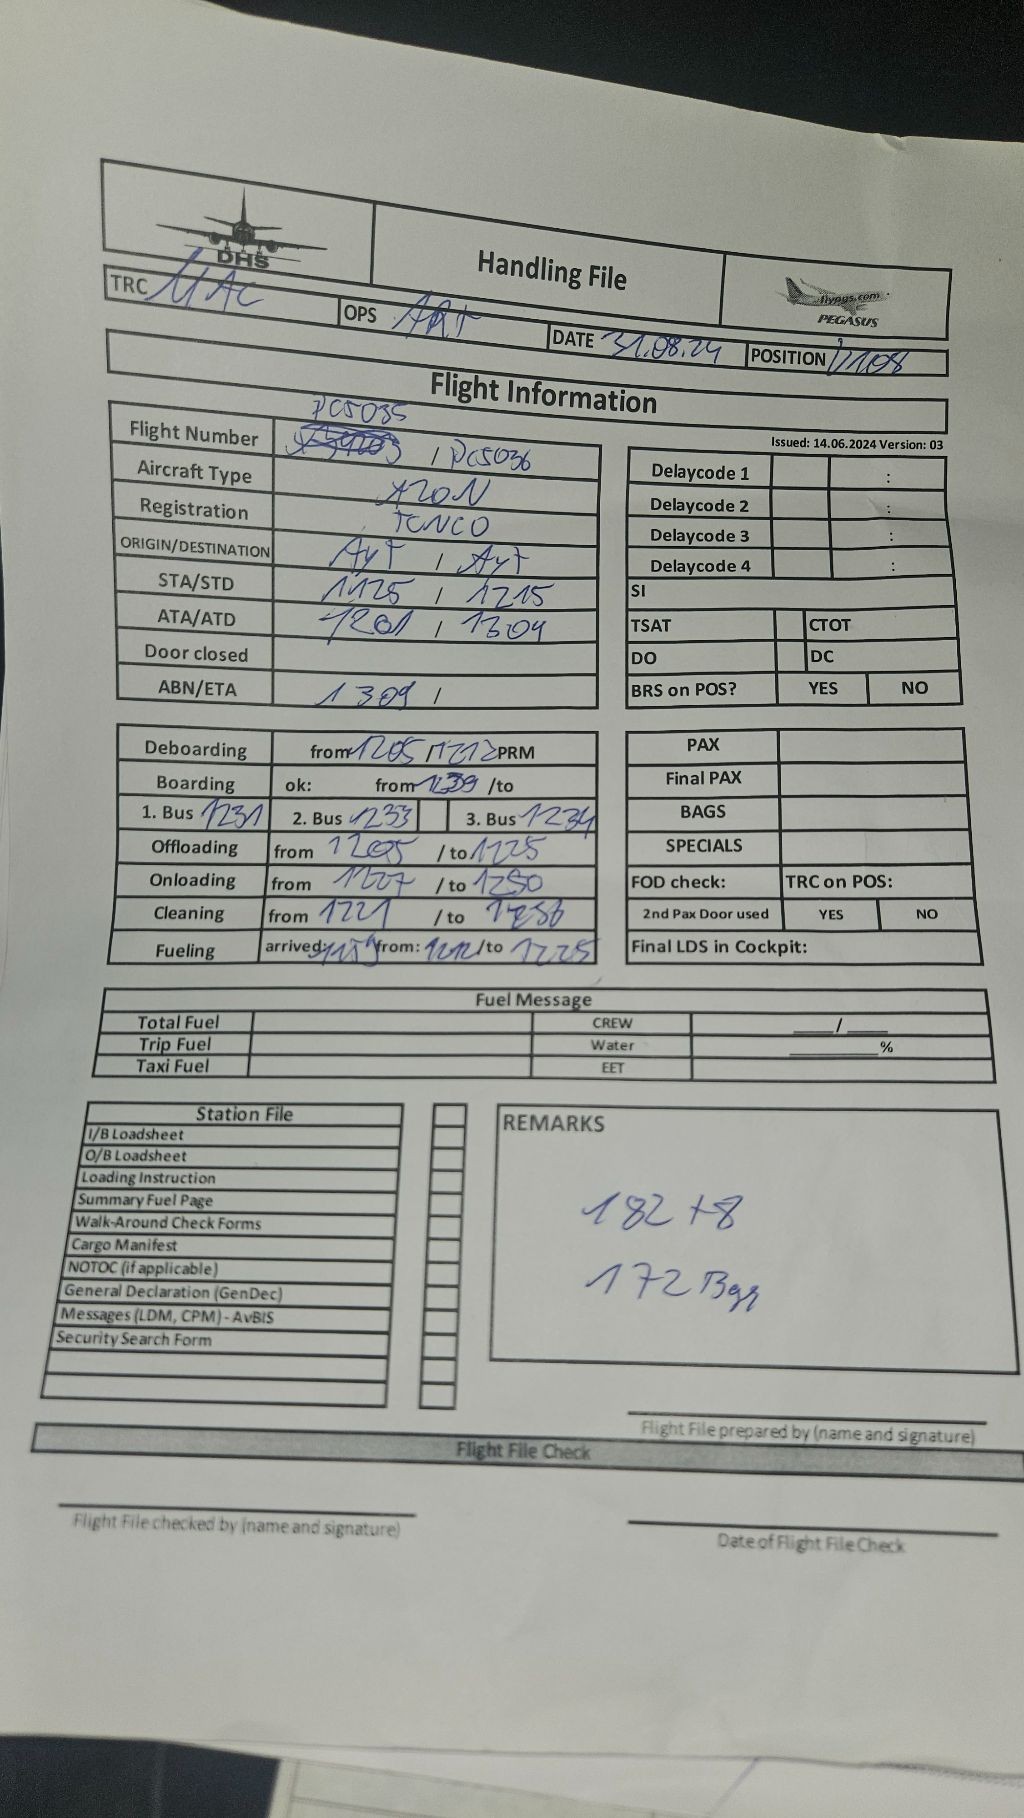 DHS
Handling File
flypgs.com
PEGASUS
TRC MAC
OPS
DATE 31.08.24
POSITION V108
Flight Information
PC5035
Flight Number / PC5036
Issued: 14.06.2024 Version: 03
Aircraft Type A20N
Registration TCNCO
ORIGIN/DESTINATION AyT / AyT
STA/STD 1125 / 1215
ATA/ATD 1201 / 1304
Door closed
ABN/ETA 1309 /
Delaycode 1 :
Delaycode 2 :
Delaycode 3 :
Delaycode 4 :
SI
TSAT CTOT
DO DC
BRS on POS? YES NO
Deboarding from 1205 /1212 PRM
Boarding ok: from 1239 /to
1. Bus 1231 2. Bus 1233 3. Bus 1234
Offloading from 1205 / to 1225
Onloading from 1227 / to 1250
Cleaning from 1221 / to
Fueling arrived: 1159 from: 1212 /to 1225
PAX
Final PAX
BAGS
SPECIALS
FOD check: TRC on POS:
2nd Pax Door used YES NO
Final LDS in Cockpit:
Fuel Message
Total Fuel CREW ___/___
Trip Fuel Water ______%
Taxi Fuel EET
Station File
I/B Loadsheet
O/B Loadsheet
Loading Instruction
Summary Fuel Page
Walk-Around Check Forms
Cargo Manifest
NOTOC (if applicable)
General Declaration (GenDec)
Messages (LDM, CPM) - AvBIS
Security Search Form
REMARKS
182 +8
172 Bgg
Flight File prepared by (name and signature)
Flight File Check
Flight File checked by (name and signature)
Date of Flight File Check